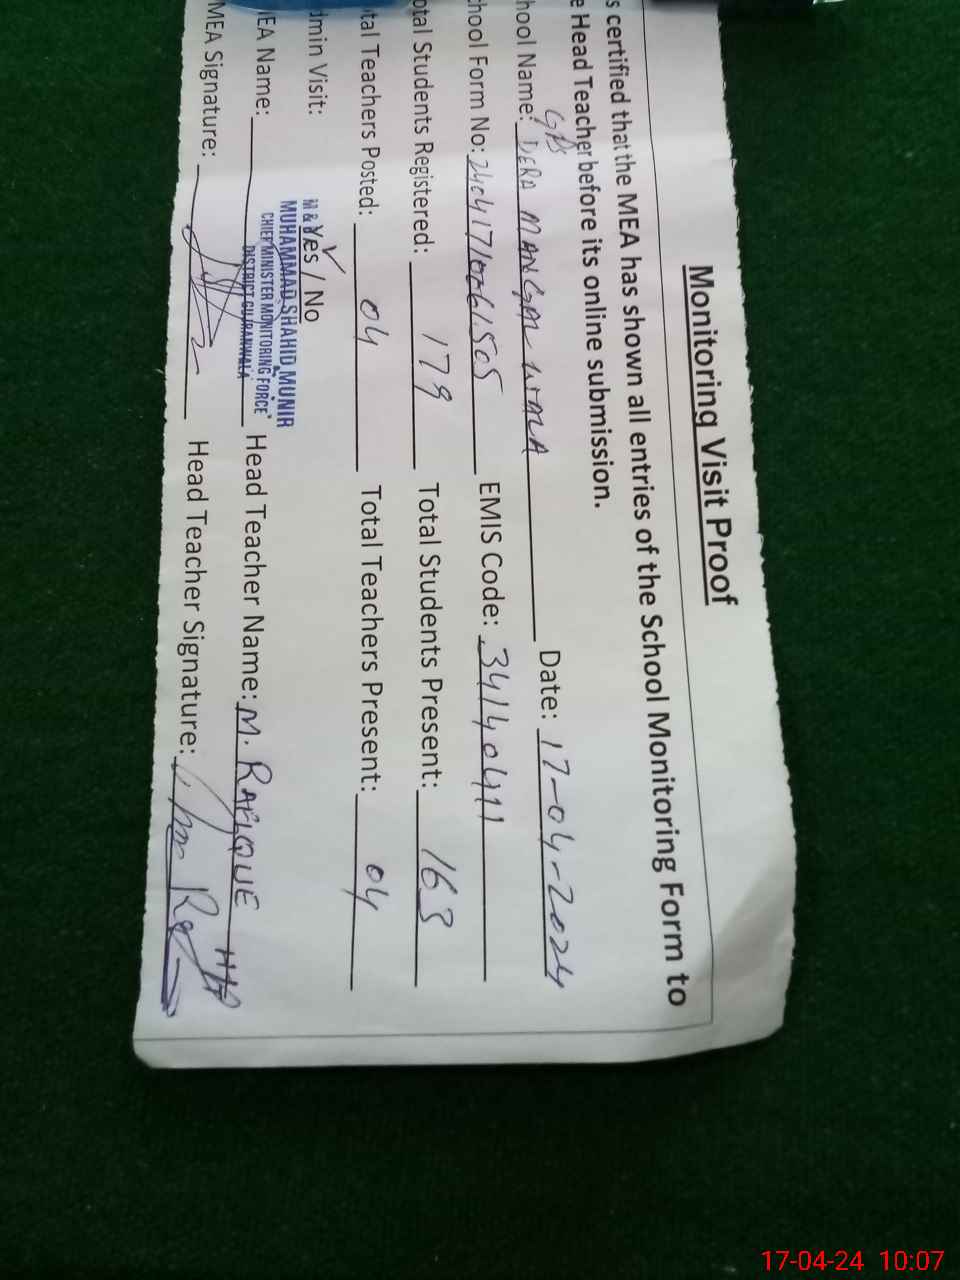 Monitoring Visit Proof
s certified that the MEA has shown all entries of the School Monitoring Form to
e Head Teacher before its online submission.
hool Name: GPS DERA MANGAL WALA Date: 17-04-2024
chool Form No: EMIS Code: 34140411
otal Students Registered: 179 Total Students Present: 163
tal Teachers Posted: 04 Total Teachers Present: 04
dmin Visit: Yes / No
M &
MUHAMMAD SHAHID MUNIR
CHIEF MINISTER MONITORING FORCE
DISTRICT GUJRANWALA
EA Name: Head Teacher Name: M. RAFIQUE
MEA Signature: Head Teacher Signature:
17-04-24 10:07